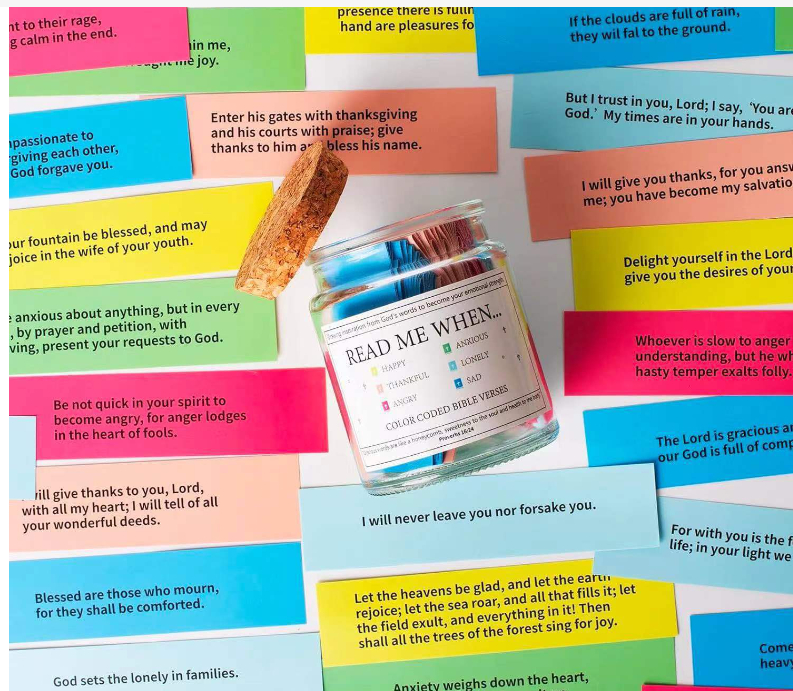 nt to their rage,
g calm in the end.
in me,
ught me joy.
presence there is fulln
hand are pleasures fo
If the clouds are full of rain,
they wil fal to the ground.
Enter his gates with thanksgiving
and his courts with praise; give
thanks to him and bless his name.
But I trust in you, Lord; I say, ‘You are
God.’ My times are in your hands.
passionate to
rgiving each other,
God forgave you.
I will give you thanks, for you answ
me; you have become my salvatio
our fountain be blessed, and may
joice in the wife of your youth.
Delight yourself in the Lord
give you the desires of your
e anxious about anything, but in every
, by prayer and petition, with
ving, present your requests to God.
inspiration from God's words to become your emotional strength
READ ME WHEN...
HAPPY
ANXIOUS
THANKFUL
LONELY
ANGRY
SAD
COLOR CODED BIBLE VERSES
words are like a honeycomb, sweetness to the soul and health to the body
Proverbs 16:24
Whoever is slow to anger
understanding, but he wh
hasty temper exalts folly.
Be not quick in your spirit to
become angry, for anger lodges
in the heart of fools.
The Lord is gracious an
our God is full of comp
will give thanks to you, Lord,
with all my heart; I will tell of all
your wonderful deeds.
I will never leave you nor forsake you.
For with you is the f
life; in your light we
Blessed are those who mourn,
for they shall be comforted.
Let the heavens be glad, and let the earth
rejoice; let the sea roar, and all that fills it; let
the field exult, and everything in it! Then
shall all the trees of the forest sing for joy.
God sets the lonely in families.
Anxiety weighs down the heart,
Come
heavy